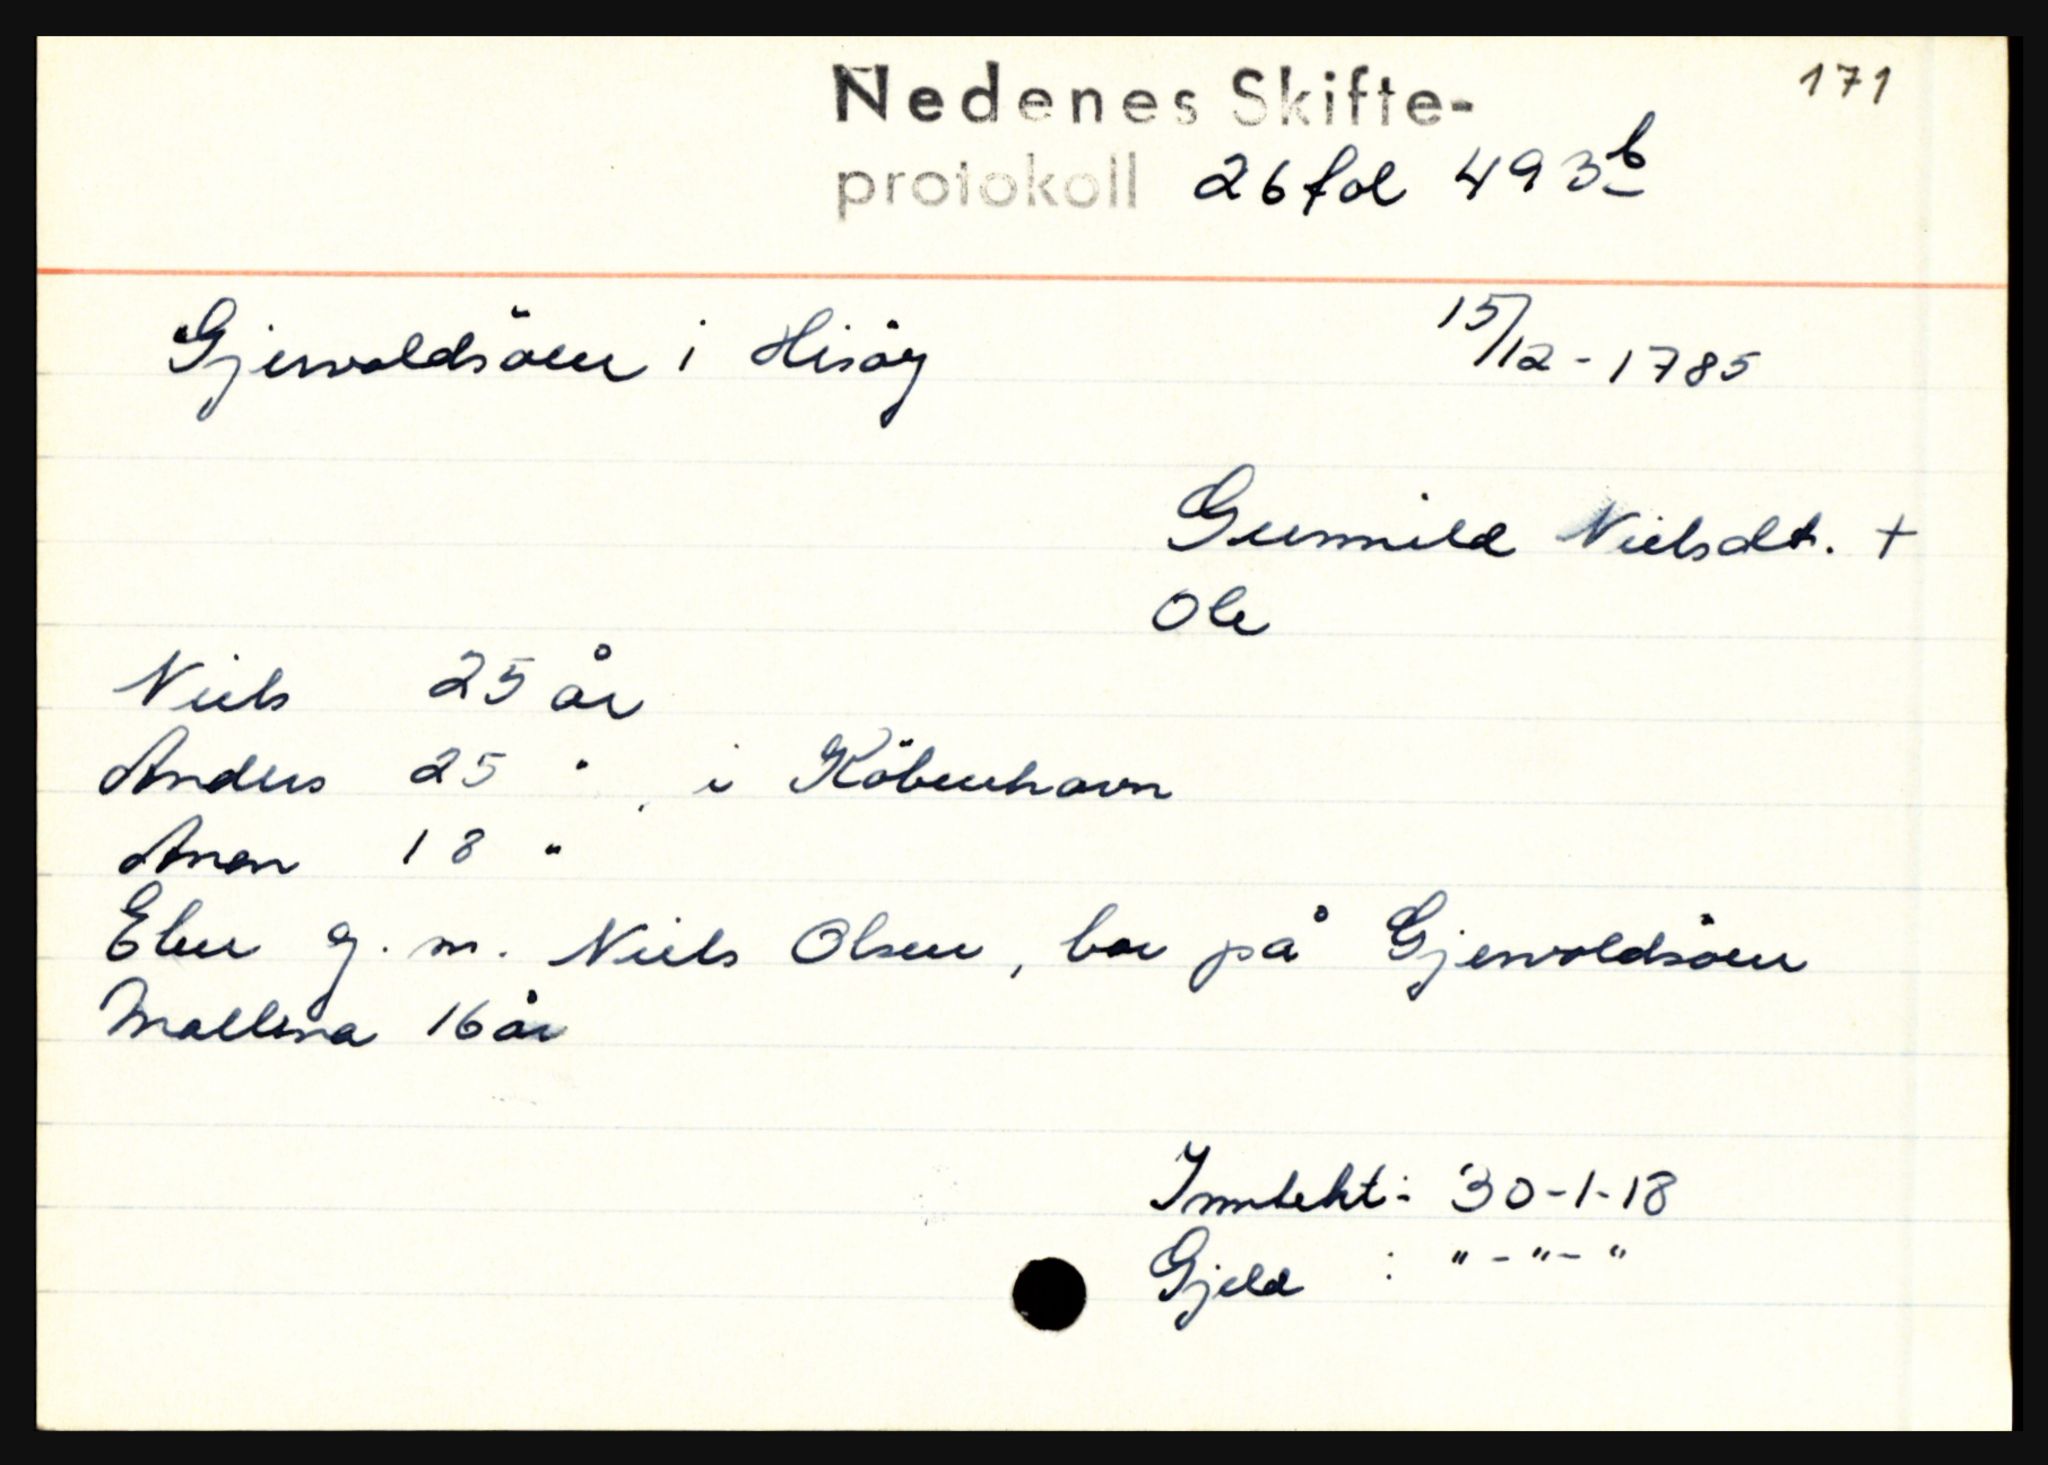 171
Nedenes Skifte-
protokoll 26 fol 493b
Gjervoldsöen i Hisöy 15/12-1785
Gunnild Nielsdt. +
Ole
Niels 25 år
Anders 25 " , i Köbenhavn
Anen 18 "
Elen g. m. Niels Olsen, bor på Gjervoldsöen
Mallena 16 år
Inntekt: 30-1-18
Gjeld : "-"-"